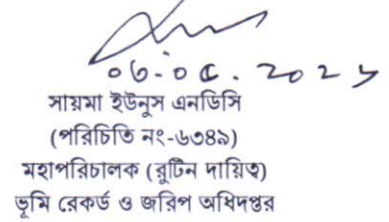 সায়মা ইউনুস এনডিসি
(পরিচিতি নং-৬৩৪৯)
মহাপরিচালক (রুটিন দায়িত্ব)
ভূমি রেকর্ড ও জরিপ অধিদপ্তর